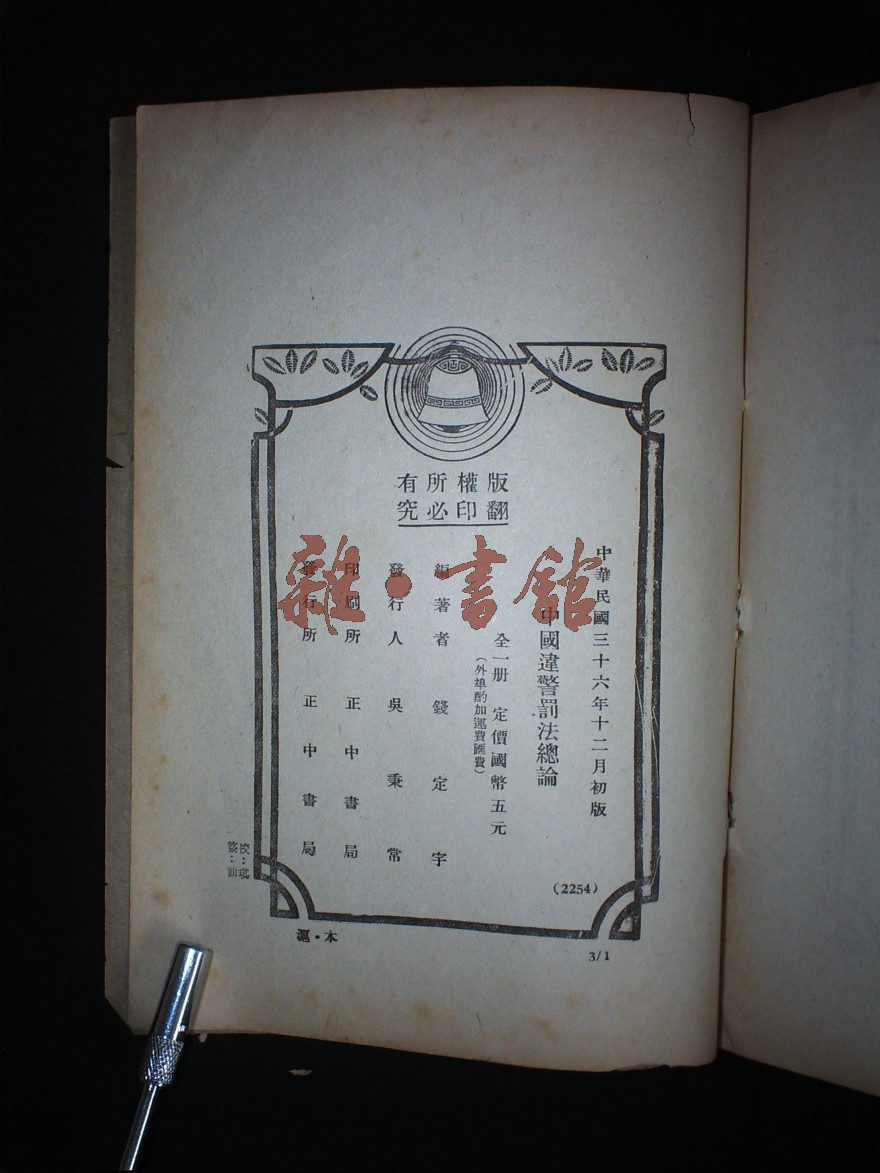 版權所有
翻印必究
中華民國三十六年十二月初版
中國違警罰法總論
全一册 定價國幣五元
(外埠酌加運費匯費)
編著者 錢定宇
發行人 吳秉常
印刷所 正中書局
發行所 正中書局
(2254)
滬·本
3/1
雜·書館